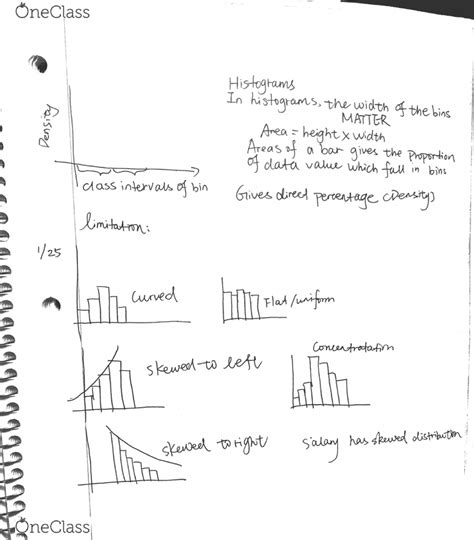 OneClass
Histograms
In histograms, the width of the bins
MATTER
Area = height x width
Areas of a bar gives the proportion
of data value which fall in bins
Density
class intervals of bin
Gives direct percentage (Density)
limitation:
1/25
Curved
Flat/uniform
Concentration
skewed to left
skewed to right
Salary has skewed distribution
OneClass